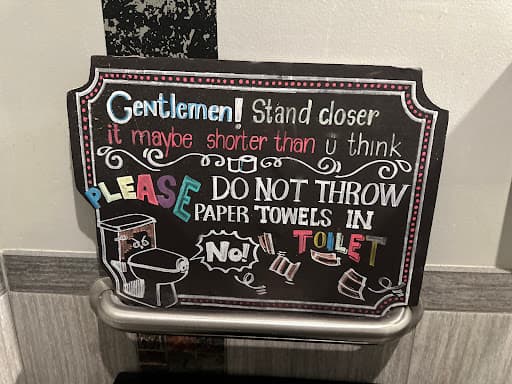 Gentlemen! Stand closer
it maybe shorter than u think
PLEASE DO NOT THROW
PAPER TOWELS IN
TOILET
No!